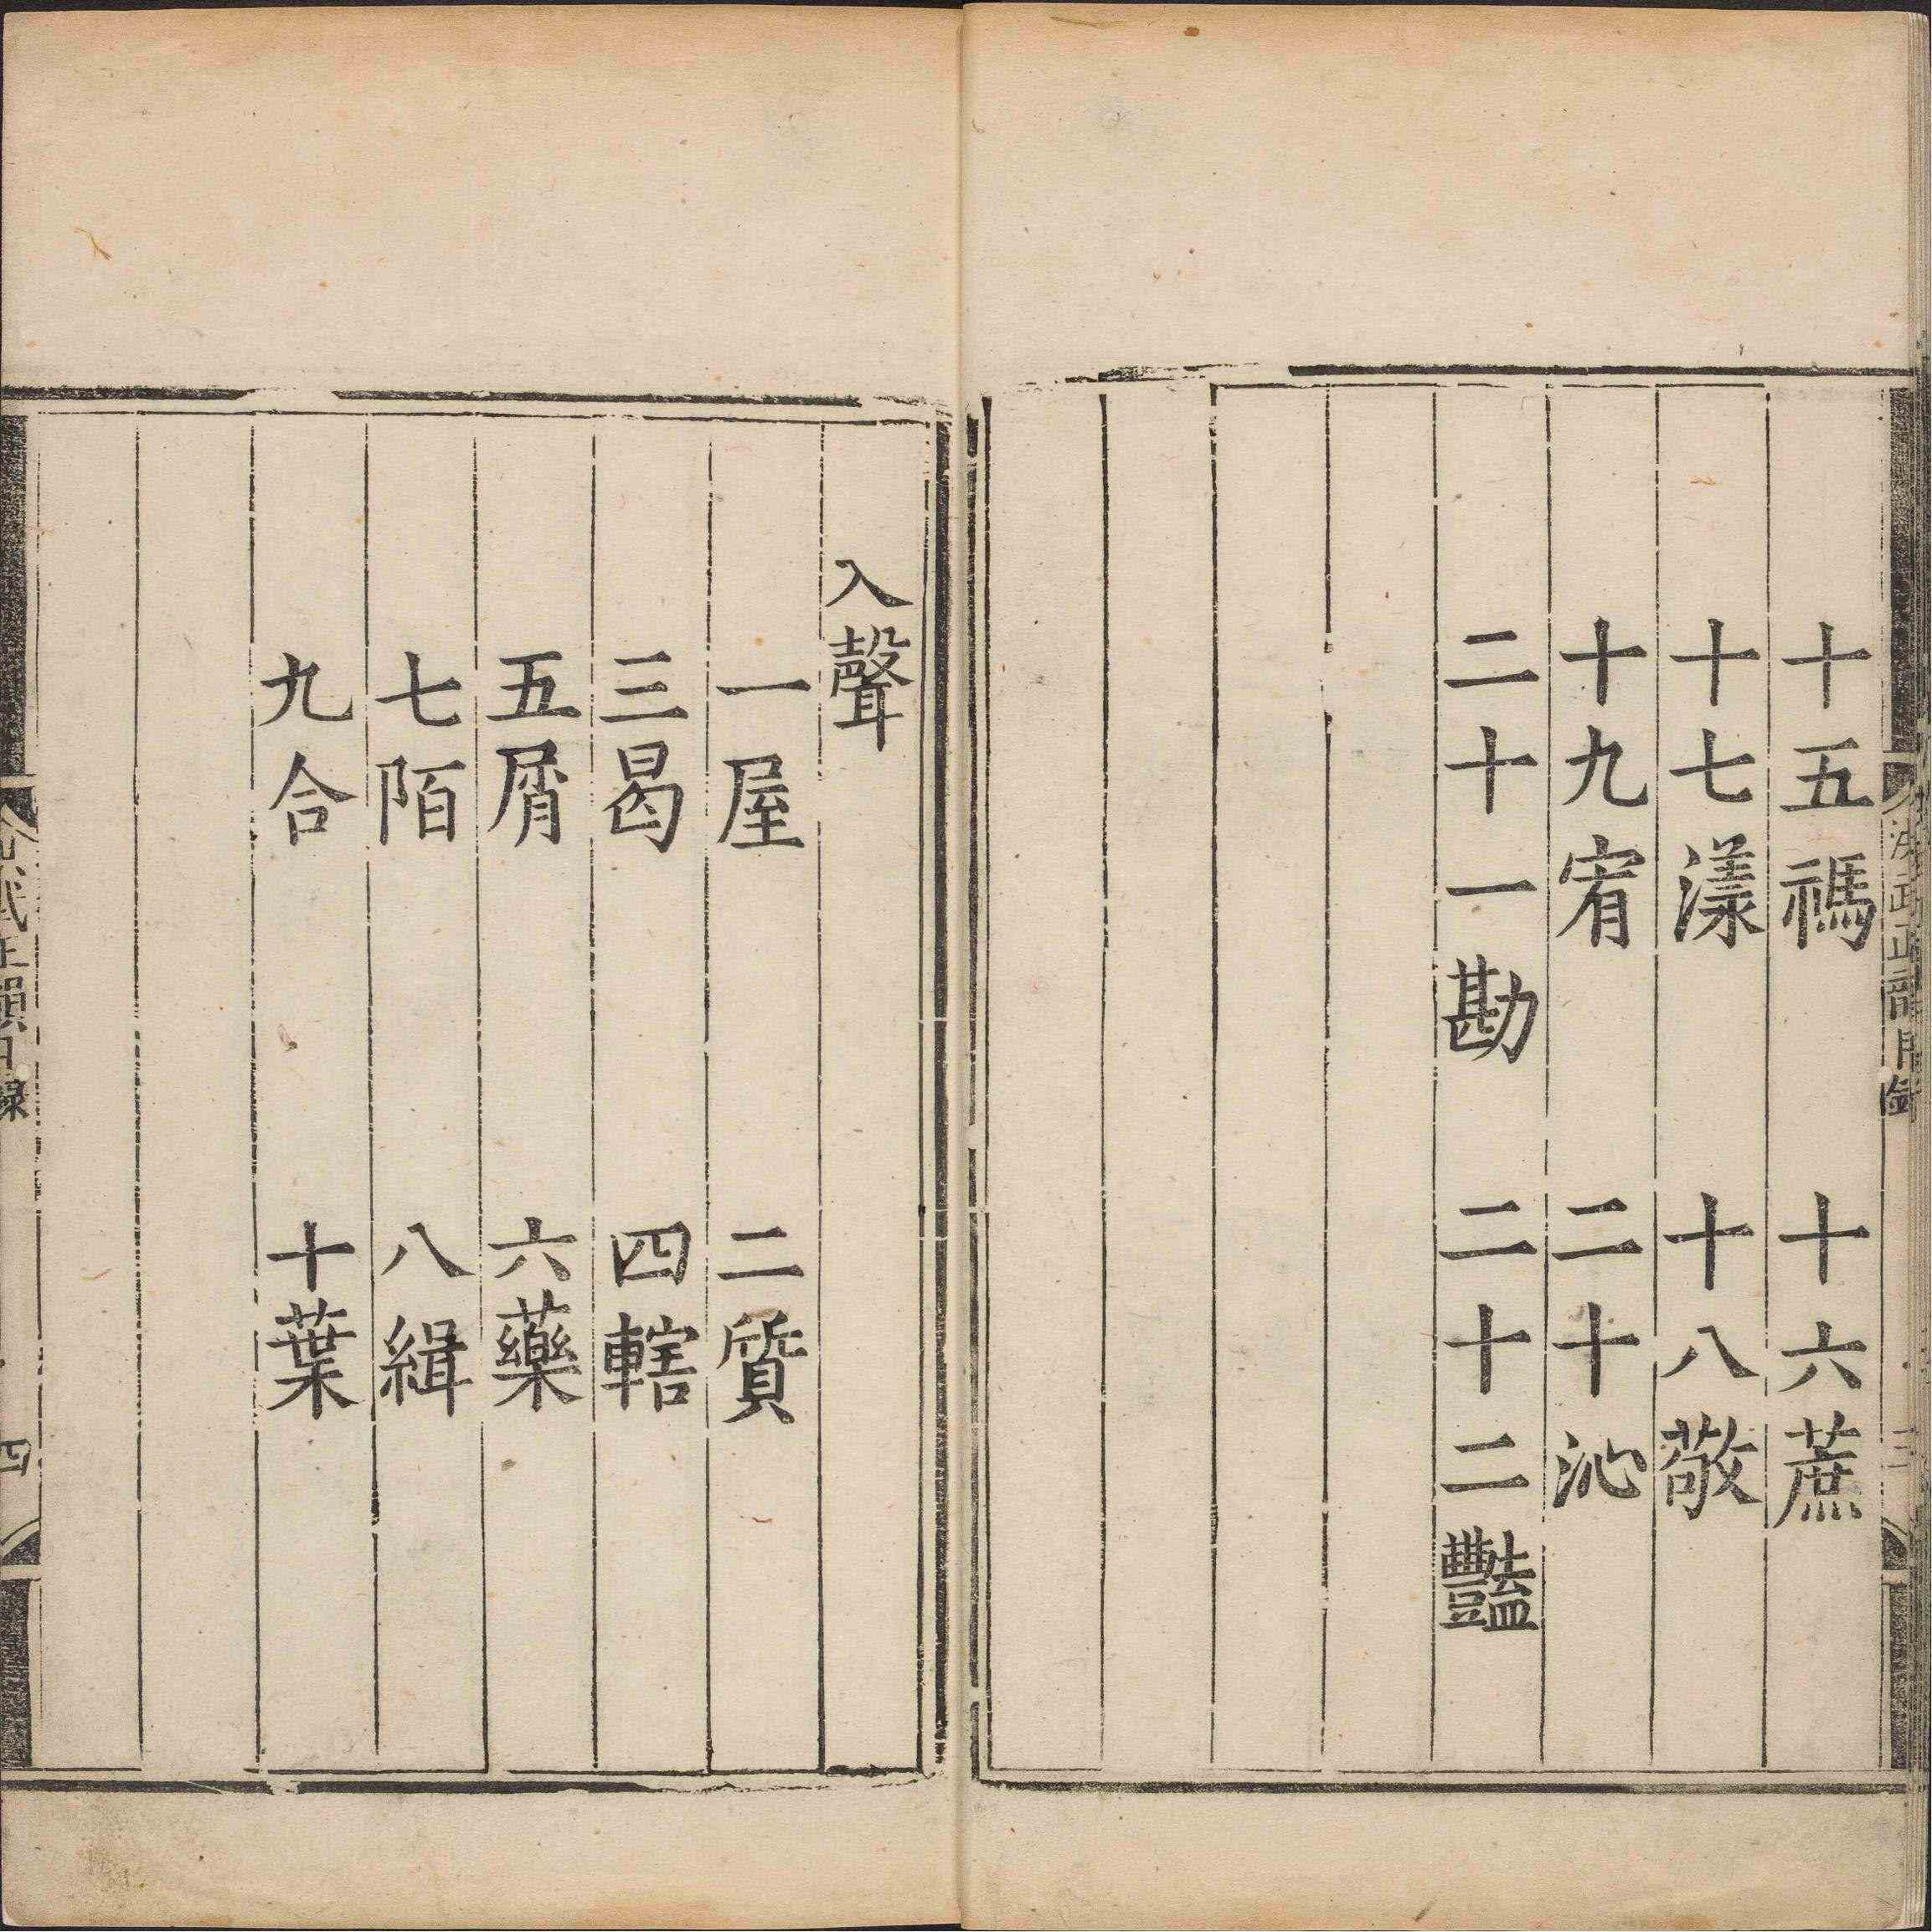 十五禡　十六蔗
十七漾　十八敬
十九宥　二十沁
二十一勘　二十二豔
入聲
一屋　二質
三曷　四轄
五屑　六藥
七陌　八緝
九合　十葉
武正韻目錄
四